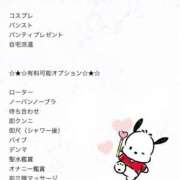 コスプレ
パンスト
パンティプレゼント
自宅派遣
☆★☆有料可能オプション☆★☆
ローター
ノーパンノーブラ
待ち合わせ
即クンニ
即尺（シャワー後）
バイブ
デンマ
聖水鑑賞
オナニー鑑賞
前立腺マッサージ